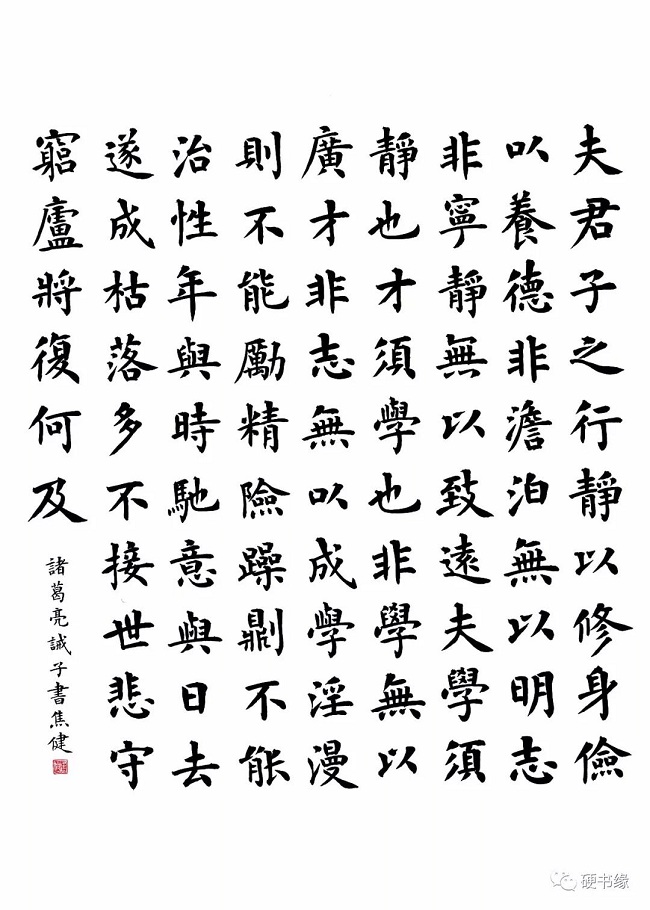 夫君子之行靜以修身儉
以養德非澹泊無以明志
非寧靜無以致遠夫學須
靜也才須學也非學無以
廣才非志無以成學淫漫
則不能勵精險躁則不能
治性年與時馳意與日去
遂成枯落多不接世悲守
窮廬將復何及
諸葛亮誡子書焦健
硬书缘